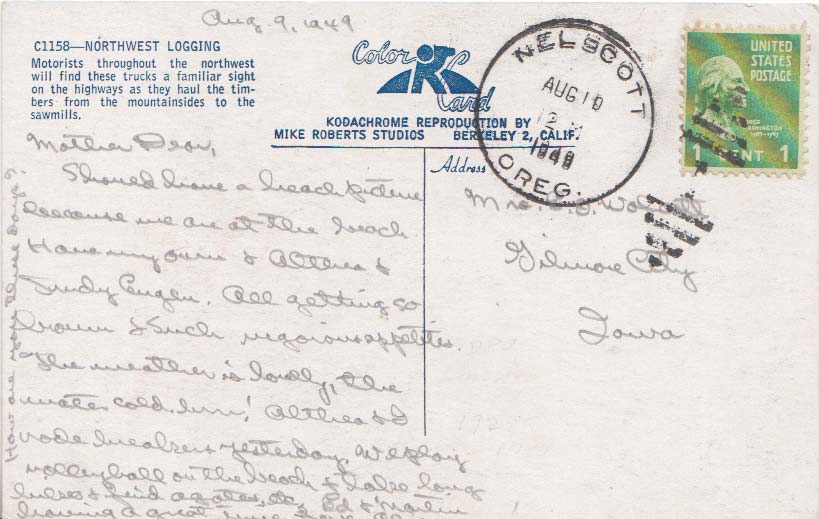 Aug. 9, 1949
C1158—NORTHWEST LOGGING
Motorists throughout the northwest
will find these trucks a familiar sight
on the highways as they haul the tim-
bers from the mountainsides to the
sawmills.
Color
Card
KODACHROME REPRODUCTION BY
MIKE ROBERTS STUDIOS BERKELEY 2, CALIF.
NELSCOTT
AUG 10
12 M
1949
OREG.
UNITED
STATES
POSTAGE
WASHINGTON
1 CENT 1
Address
Mrs.
Gilmore City
Iowa
Mother Dear,
Should have a beach picture
because we are at the beach.
Have my own & Althea &
All getting so
brown & such vigorous appetites.
The weather is lovely, the
water cold. Brrr! Althea & I
rode breakers yesterday. We play
volleyball on the beach & take long
hikes & find agates, etc. Ed &
having a great time
How are you these days